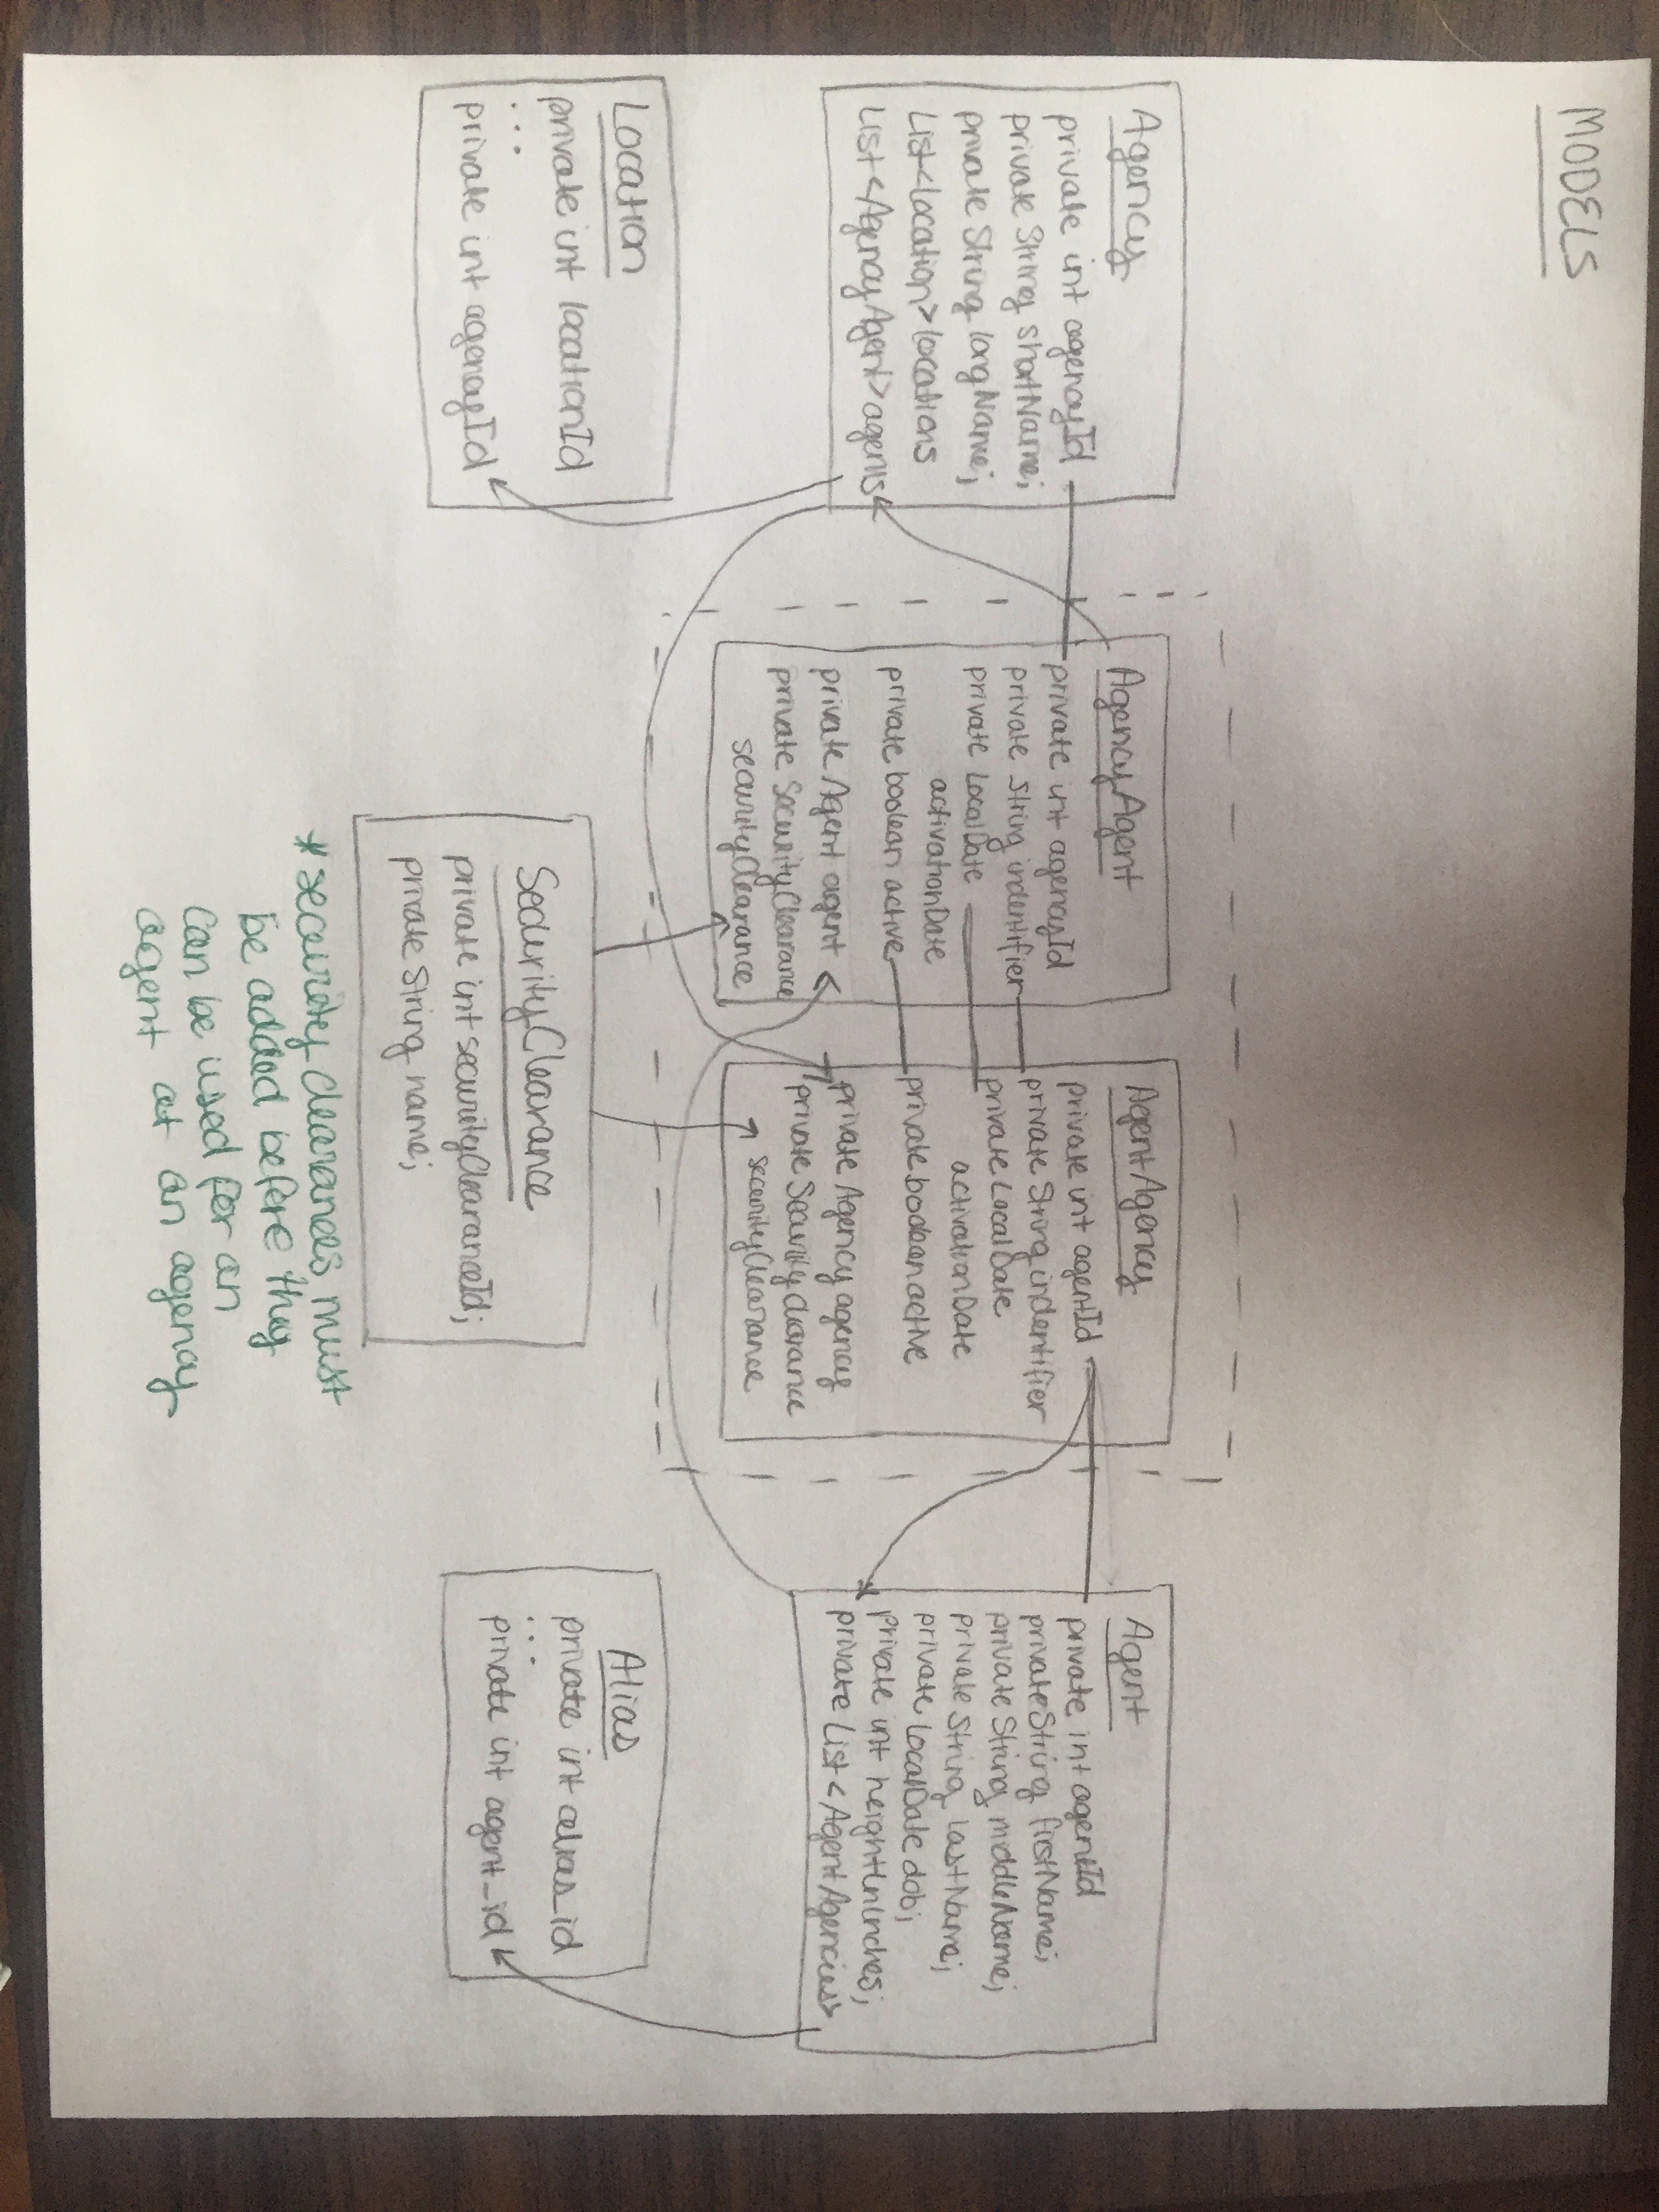 MODELS
Agency
private int agencyId
private String shortName;
private String longName;
List<Location> locations
List<AgencyAgent> agents
AgencyAgent
private int agencyId
private String indentifier
private LocalDate
activationDate
private boolean active
private Agent agent
private SecurityClearance
securityClearance
AgentAgency
private int agentId
private String indentifier
private LocalDate
activationDate
private boolean active
private Agency agency
private Security clearance
securityClearance
Agent
private int agentId
private String firstName;
private String middleName;
private String lastName;
private LocalDate dob;
private int heightInInches;
private List<AgentAgencies>
Location
private int locationId
...
private int agencyId
SecurityClearance
private int securityClearanceId;
private String name;
Alias
private int alias_id
...
private int agent_id
* security clearances must
be added before they
can be used for an
agent at an agency